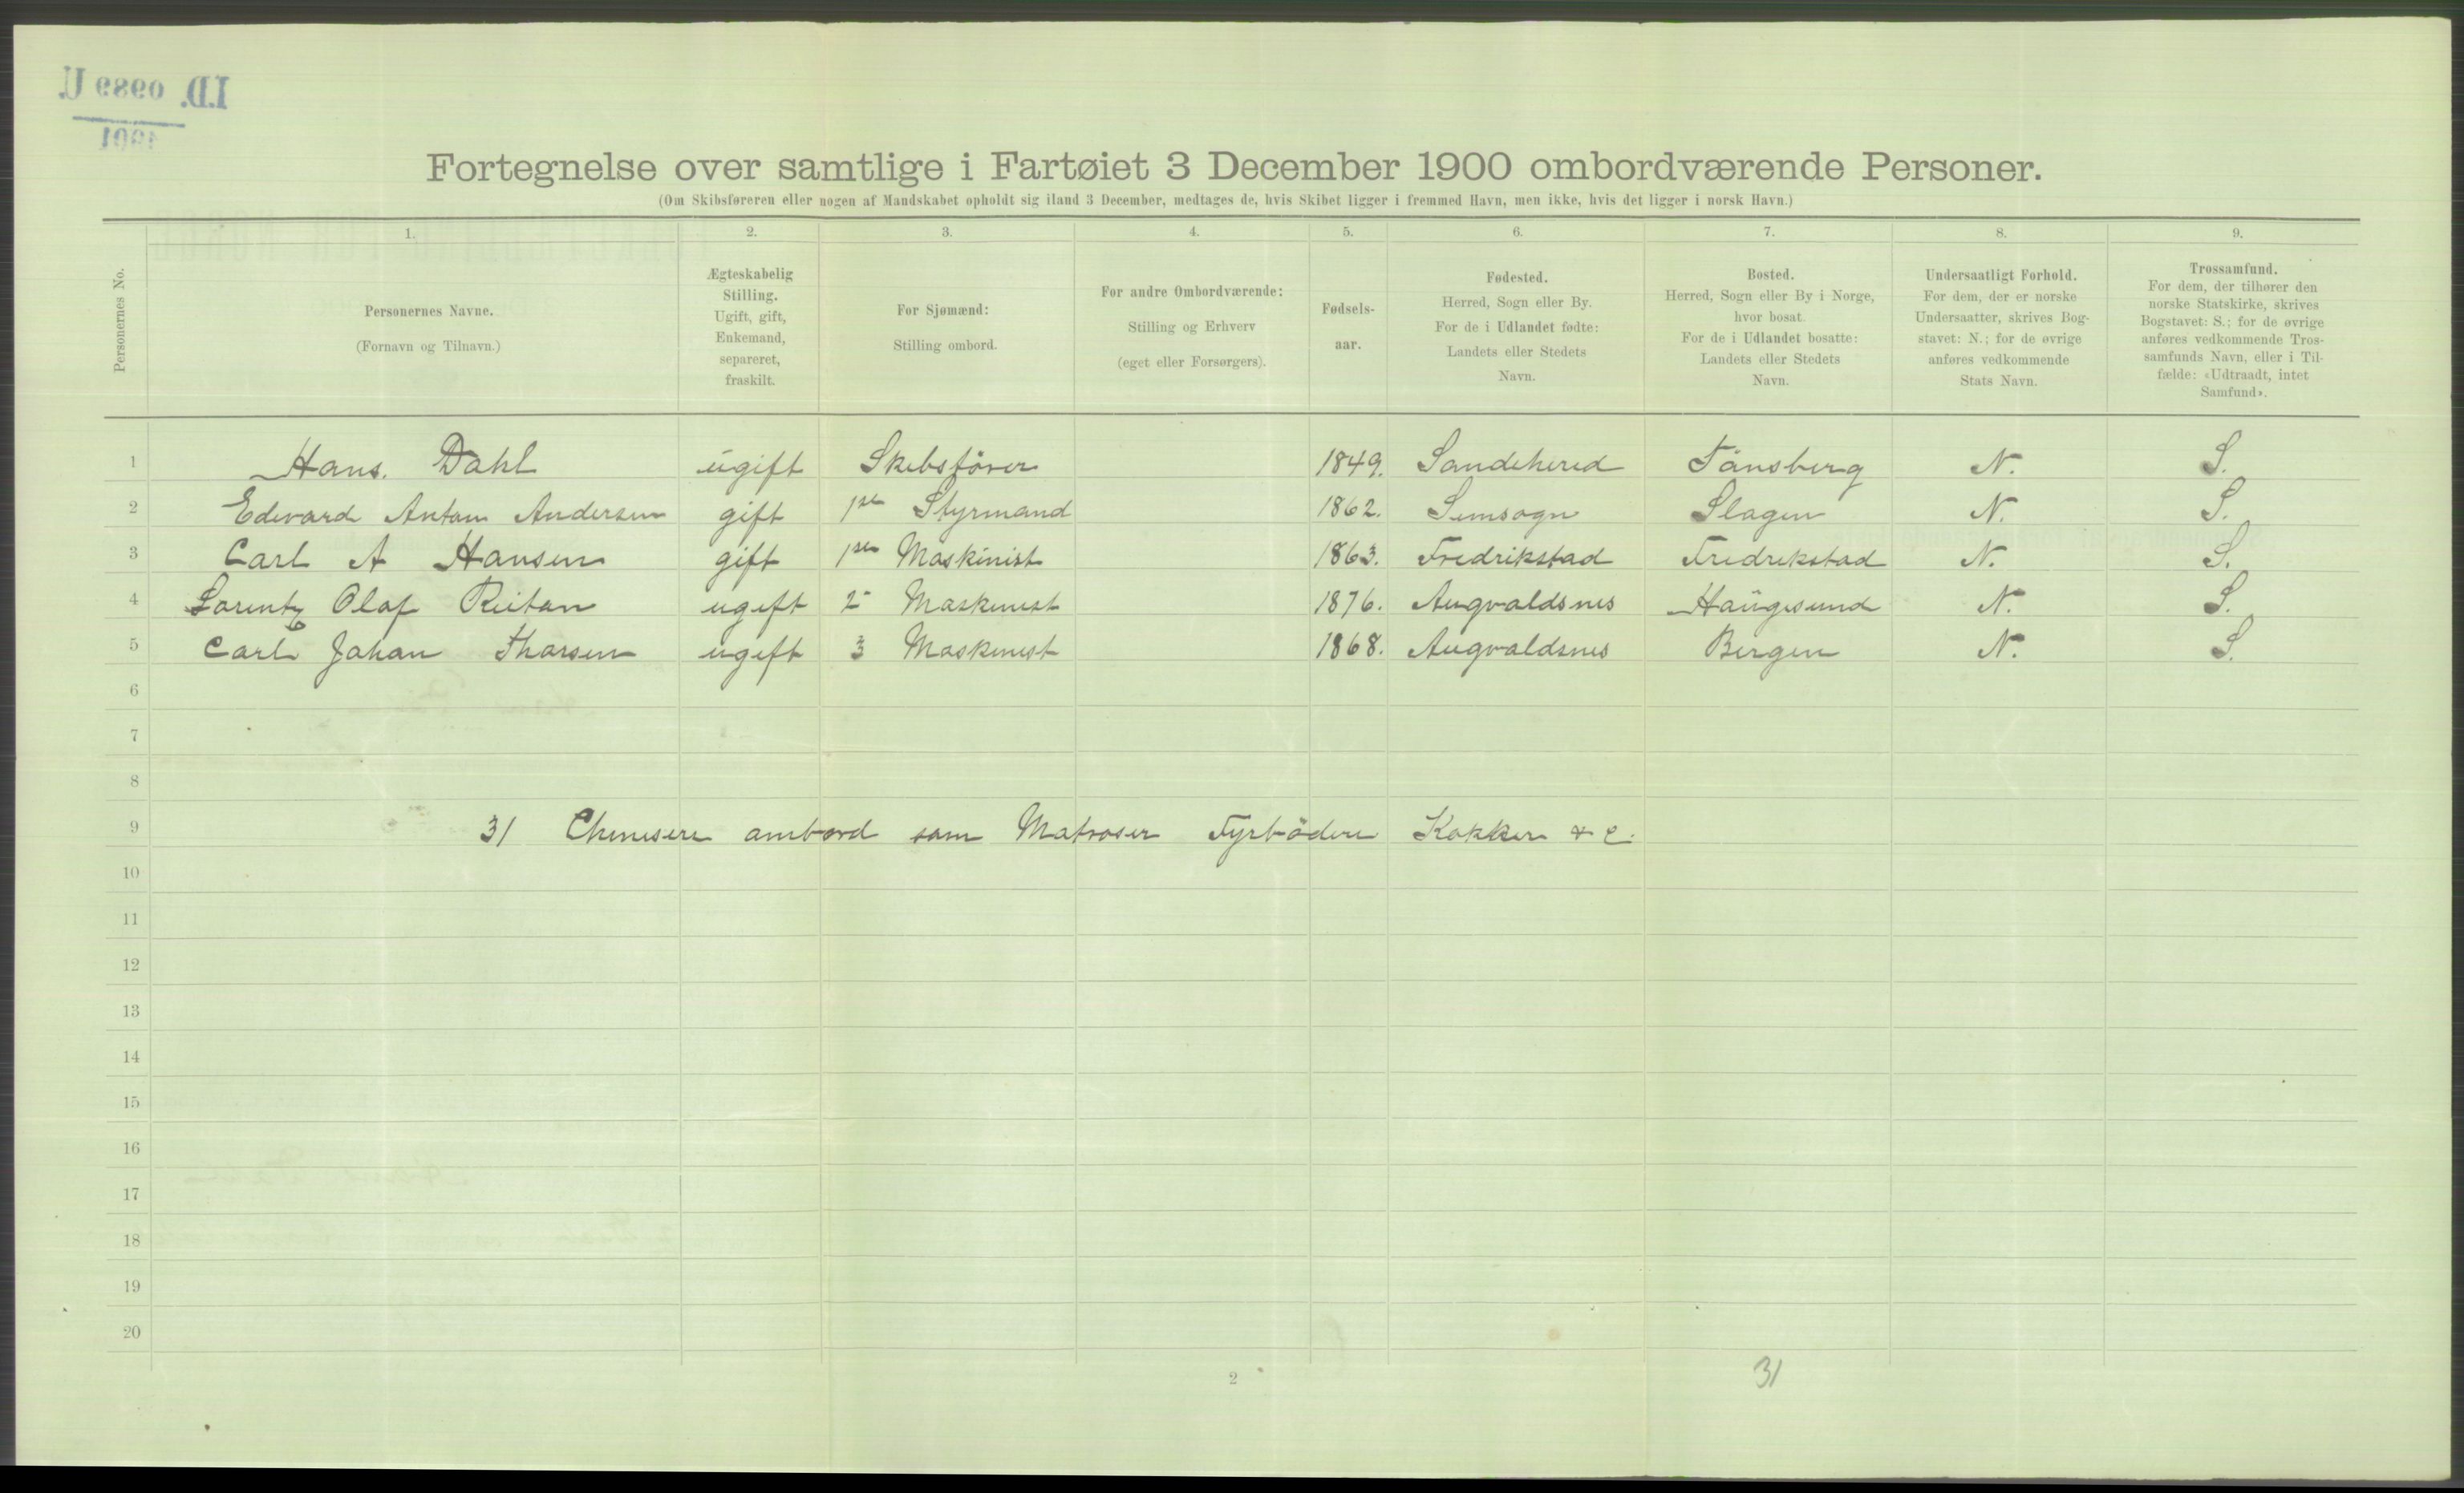 I.D. 0989 U.
1901
Fortegnelse over samtlige i Fartøiet 3 December 1900 ombordværende Personer.
(Om Skibsføreren eller nogen af Mandskabet opholdt sig iland 3 December, medtages de, hvis Skibet ligger i fremmed Havn, men ikke, hvis det ligger i norsk Havn.)
1. 2. 3. 4. 5. 6. 7. 8. 9.
Personernes No.
Personernes Navne.
(Fornavn og Tilnavn.)
Ægteskabelig
Stilling.
Ugift, gift,
Enkemand,
separeret,
fraskilt.
For Sjømænd:
Stilling ombord.
For andre Ombordværende:
Stilling og Erhverv
(eget eller Forsørgers).
Fødsels-
aar.
Fødested.
Herred, Sogn eller By.
For de i Udlandet fødte:
Landets eller Stedets
Navn.
Bosted.
Herred, Sogn eller By i Norge,
hvor bosat.
For de i Udlandet bosatte:
Landets eller Stedets
Navn.
Undersaatligt Forhold.
For dem, der er norske
Undersaatter, skrives Bog-
stavet: N.; for de øvrige
anføres vedkommende
Stats Navn.
Trossamfund.
For dem, der tilhører den
norske Statskirke, skrives
Bogstavet: S.; for de øvrige
anføres vedkommende Tros-
samfunds Navn, eller i Til-
fælde: «Udtraadt, intet
Samfund».
1 Hans. Dahl ugift Skibsförer 1849. Sandeherred Tönsberg N. S.
2 Edvard Anton Andersen gift 1ste Styrmand 1862. Semsogn Slagen N. S.
3 Carl A Hansen gift 1ste Maskinist 1863. Fredrikstad Fredrikstad N. S.
4 Lorentz Olaf Reitan ugift 2 Maskinist 1876. Augvaldsnes Haugesund N. S.
5 Carl Johan Thorsen ugift 3 Maskinist 1868. Augvaldsnes Bergen N. S.
6
7
8
9 31 Chinesere ombord som Matroser Fyrbödere Kokker & c.
10
11
12
13
14
15
16
17
18
19
20
2
31